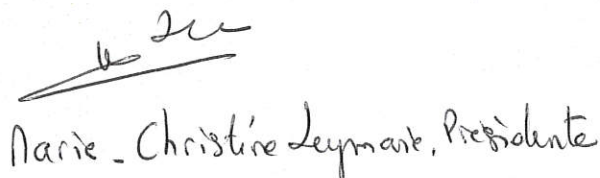 Marie - Christine Leymarie, Présidente